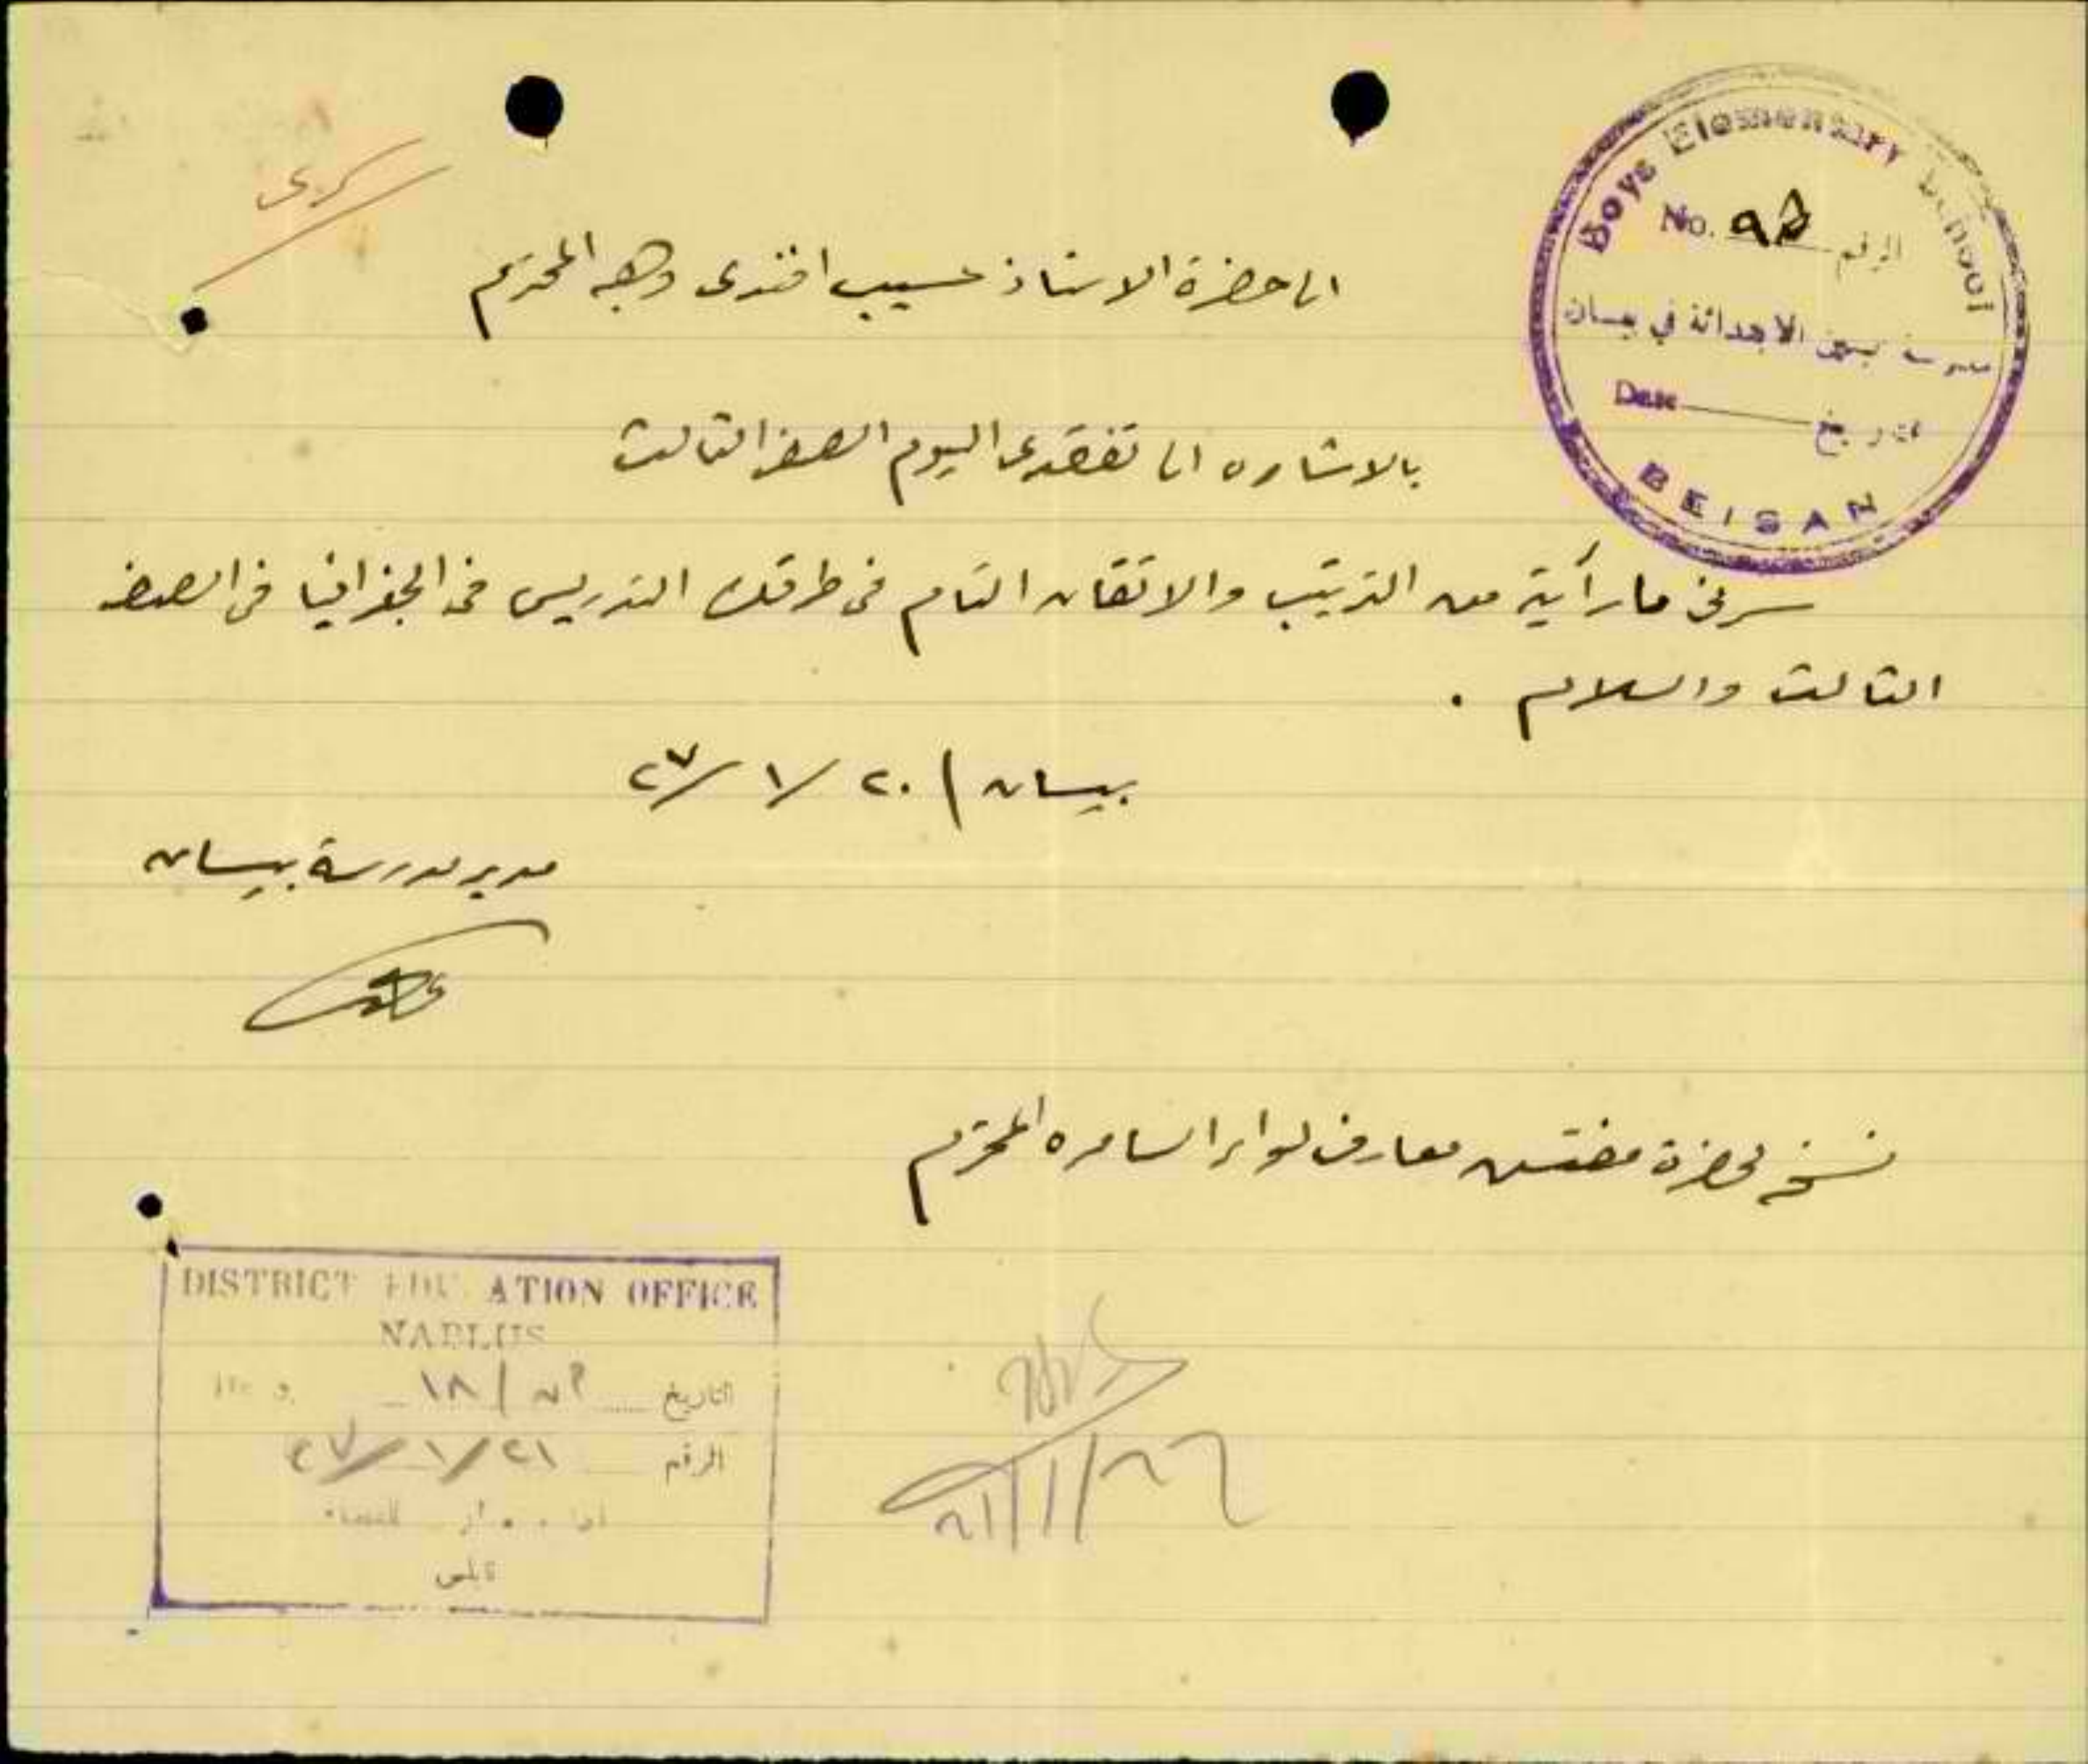 سري
Boys Elementary School
No. ٩٥ الرقم
مدرسة بيسان الابتدائية في بيسان
Date تاريخ
BEISAN
الى حضرة الاستاذ حسيب افندى وهبه المحترم
بالاشاره الى تفقدى اليوم الصف الثالث
سرنى ما رأيته من الترتيب والاتقان التام فى طرقك التدريس فى الجغرافيا فى الصف
الثالث والسلام .
بيسان / ٢٠ /١ /٤٧
مدير مدرسة بيسان
نسخه لحضرة مفتش معارف لواء السامره المحترم
DISTRICT EDUCATION OFFICE
NABLUS
التاريخ ١٨/
الرقم ٢١/١/٤٧
نابلس